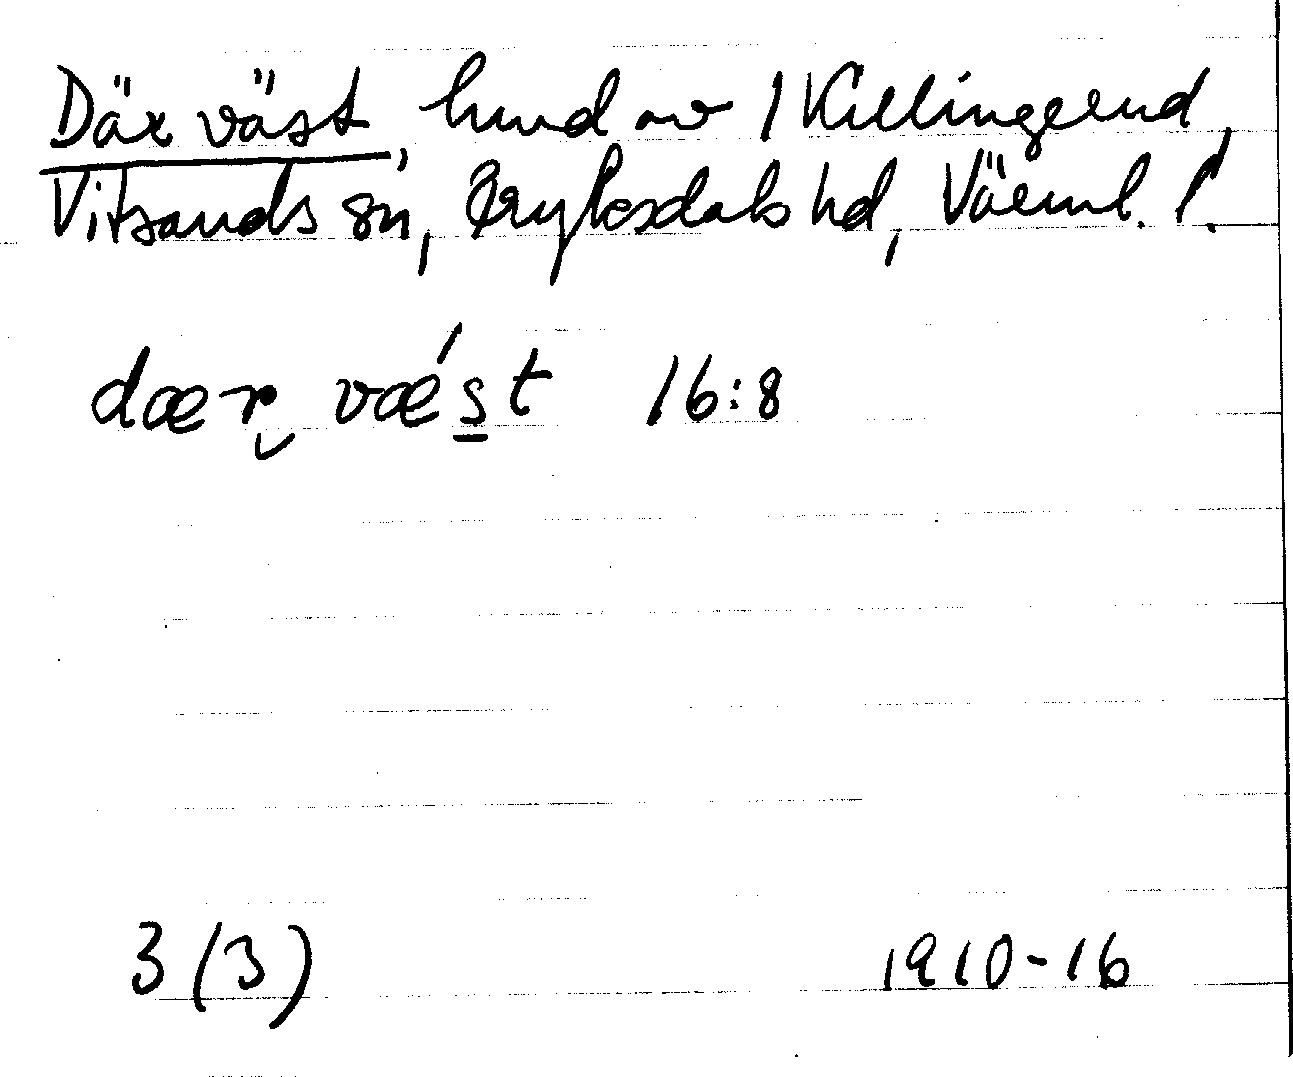 Där väst, hmd av 1 Killingerud,
Vitsands sn, Fryksdals hd, Värml. l.
dær væ´st 16:8
3 (3) 1910-16